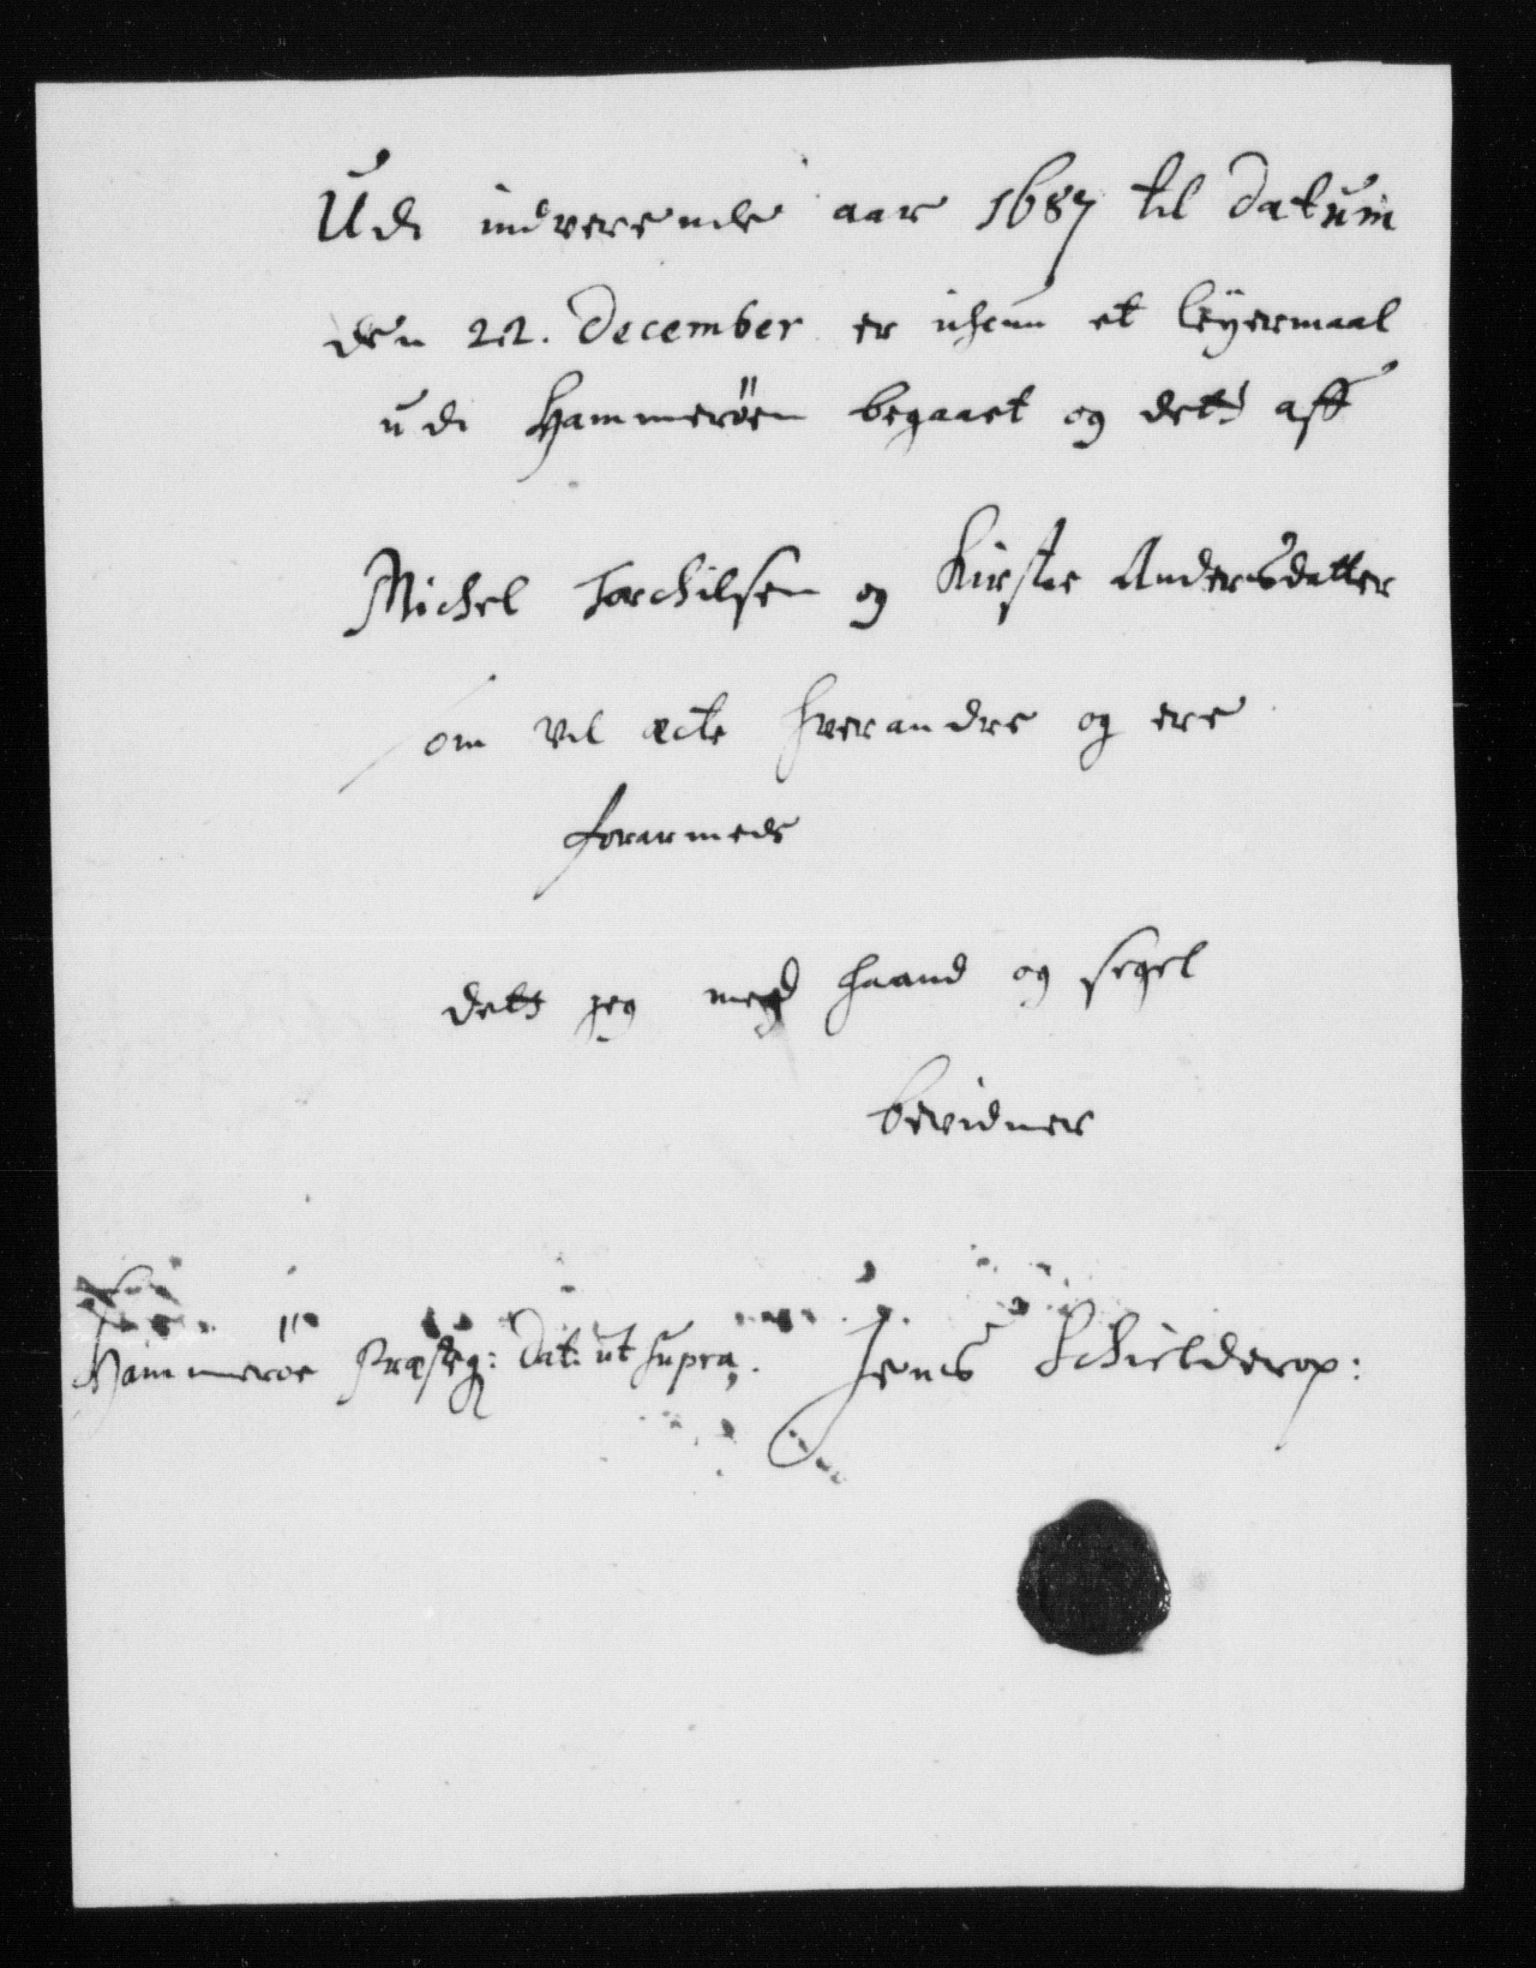 Udi indverende aar 1687 til Datum
den 22. December er ikun et leyermaal
udi Hammerøen begaaet og dets aff
Michel Torchilsen og Kirste Andersdatter
som vil ecte hverandre og ere
forarmede
dets jeg med haand og segel
bevidner
Hammeröe Præsteg: Dat: ut supra. Jens Schielderop: